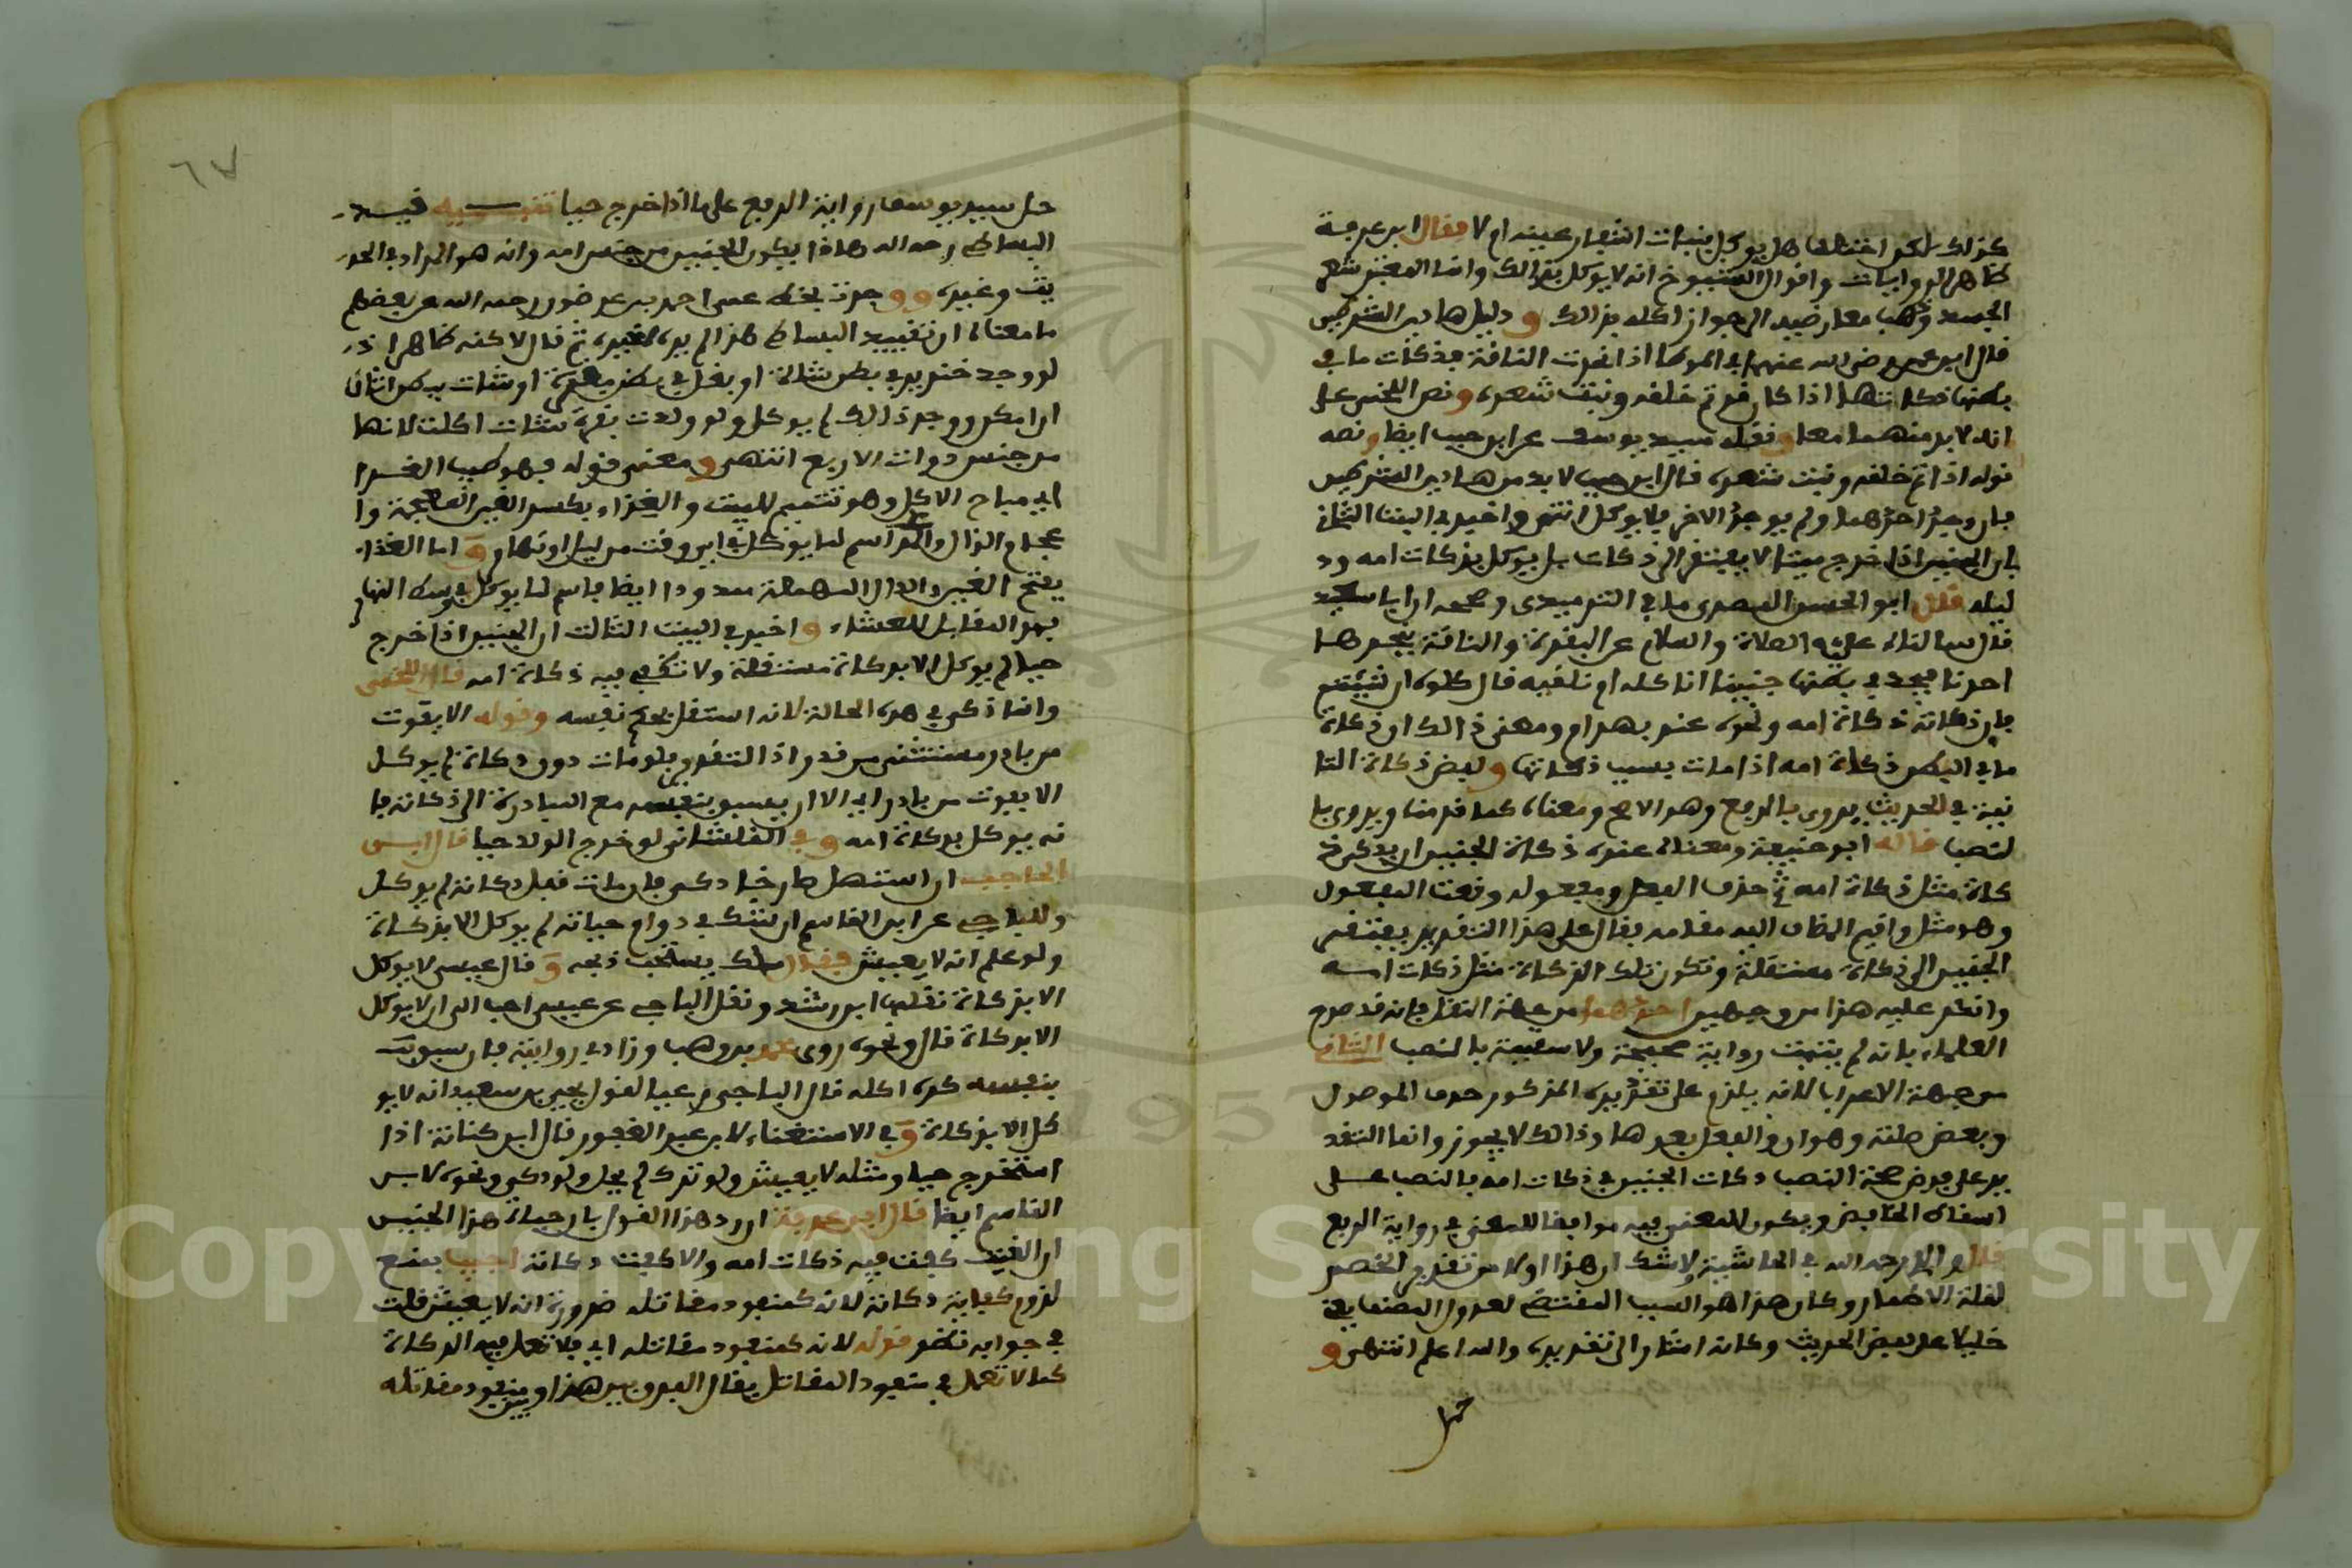 كذلك لكن اختلف هل يوكل بنبات اشفار عينه ام لا فقال ابن عرفة
ظاهر الروايات واقوال الشيوخ انه لا يوكل بذالك وانما المعتبر شعر
الجسد وذهب معارضيه الى جواز اكله بذالك و دليل هاذين الشرطين
قال ابن عمر رضي الله عنهما في الموطا اذا نحرت الناقة فذكات ما في
بطنها ذكاتها اذا كان قد تم خلقه ونبت شعره ونص اللخمي على
انه لابد منهما معا ونقله سيد يوسف عن ابن حبيب ايضا ونصه
قوله اذا تم خلقه ونبت شعره قال ابن حبيب لا بد من هاذين الشرطين
فان وجد احدهما ولم يوجد الاخر فلا يوكل انتهى واخبر في البيت الثاني
بان الجنين اذا خرج ميتا لا يفتقر الى ذكات بل يوكل بذكات امه ود
ليله قال ابو الحسن الصغير ما في الترميدى وصححه ان ابا سعيد
قال سالنا عليه الصلاة والسلام عن البقرة والناقة ينحرها
احدنا فيجد في بطنها جنينا اناكله ام نلقيه قال كلوه ان شيتم
فان ذكاته ذكاة امه ونحوه عند بهرام ومعنى ذالك ان ذكاة
ما في البطن ذكاة امه اذا مات بسبب ذكاتها ولبعض ذكاة الثا
نية في الحديث يروى بالرفع وهو الاصح ومعناه كما قدمنا ويروى با
لنصب قاله ابو حنيفة ومعناه عنده ذكاة الجنين ان يذكى ذ
كاة مثل ذكاة امه ثم حذف الفعل ومفعوله ونعت المفعول
وهو مثل واقيم المضاف اليه مقامه فقال على هذا التقدير يفتقر
الجنين الى ذكاة مستقلة وتكون تلك الذكاة مثل ذكات امه
وانظر عليه هذا من وجهين احدهما من جهة النقل فانه قد صرح
العلماء بانه لم يثبت رواية صحيحة ولا سقيمة بالنصب الثاني
من جهة الاعراب لانه يلزم على تقديره المذكور حذف الموصول
وبعض صلته وهو ان والفعل بعدها وذالك لا يجوز وانما التقد
ير على فرض صحة النصب ذكات الجنين في ذكات امه بالنصب على
اسقاط الخافض ويكون المعنى فيه موافقا للمعنى في رواية الرفع
قال والدي رحمه الله في الحاشية لا شك ان هذا اولا من تقدير الخصم
لقلة الاضمار وكان هذا هو السبب المقتضي لعدول المصنف يعني
خليلا على لفظ الحديث وكانه اشار الى تقديره والله اعلم انتهى و
حمل
٦٧
حمل سيد يوسف رواية الرفع على ما اذا خرج حيا تنبيه قيد
البساطي رحمه الله هاذا بكون الجنين من جنس امه وانه هو المراد في الحد
يث وغيره ووجدت بخط عمى احمد بن عوضور رحمه الله عن بعضهم
ما معناه ان تقييد البساطي هذا لم يره لغيره ثم قال لاكنه ظاهر اذ
لو وجد خنزير في بطن شاة او بغل في بطن بقرة او شاة في بطن اتان
ان امكن ووجد ذالك لم يوكل ولو ولدت بقرة شات اكلت لانها
من جنس ذوات الاربع انتهى ومعنى قوله فهو طيب الغذا
اي مباح الاكل وهو تتميم للبيت والغذاء بكسر الغين المعجمة وا
عجام الذال والمد اسم لما يوكل في اي وقت من ليل او نهار و اما الغداء
بفتح الغين والدال المهملة ممدودا ايضا فاسم لما يوكل في وسط النهار
فهو المقابل للعشاء واخبر في البيت الثالث ان الجنين اذا خرج
حيا لم يوكل الا بذكاة مستقلة ولا تكفي فيه ذكاة امه قال اللخمي
وانما ذكى في هذه الحالة لانه استقل بحكم نفسه وقوله الا يفوت
من بادر مستثنى من قدر اذ التقدير فلو مات دون ذكاة لم يوكل
الا يفوت من بادر اي الا ان يسبق بنفسه مع المبادرة الى ذكاته فا
نه يوكل بذكاة امه وفي القلشاني لو خرج الولد حيا قال ابن
الحاجب ان استهل صارخا ذكى فان مات قبل ذكاته لم يوكل
وللباجي عن ابن القاسم ان شك في دوام حياته لم يوكل الا بذكاة
ولو علم انه لا يعيش فقال ملك يستحب ذبحه و قال عيسى لا يوكل
الا بذكاة نقلها ابن رشد ونقل الباجي عن عيسى احب الى ان لا يوكل
الا بذكاة قال ونحوه روى محمد بن وهب وزاد في رواية فان سبوت
بنفسه كره اكله قال الباجي وعبا لقول يحيى بن سعيد انه لا يو
كل الا بذكاة وفي الاستغناء لابن عبد الغفور قال ابن كنانة اذا
استخرج حيا ومثله لا يعيش ولو ترك لم يحل ولو ذكى ونحوه لابن
القاسم ايضا قال ابن عرفة ان رد هذا القول بان حياة هذا الجنين
ان الغيت كفت فيه ذكات امه والا كفت ذكاته اجيب بمنع
لزوم كفاية ذكاته لانه كمنفوذ مقاتله ضرورة انه لا يعيش قلت
في جوابه نظر قوله لانه كمنفوذ مقاتله اي فلا تعمل فيه الذكاة
كما لا تعمل في منفوذ المقاتل يقال الفرق بين هذا وبين منفوذ مقاتله
Copyright © King Saud University
1957